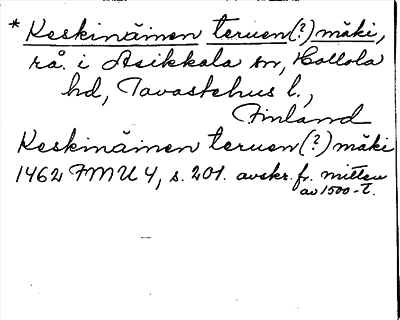 * Keskinäinen teruen(?)mäki,
rå. i Asikkala sn, Hollola
hd, Tavastehus l.,
Finland
Keskinäinen teruen(?)mäki
1462 FMU 4, s. 201. avskr. fr. mitten
av 1500-t.